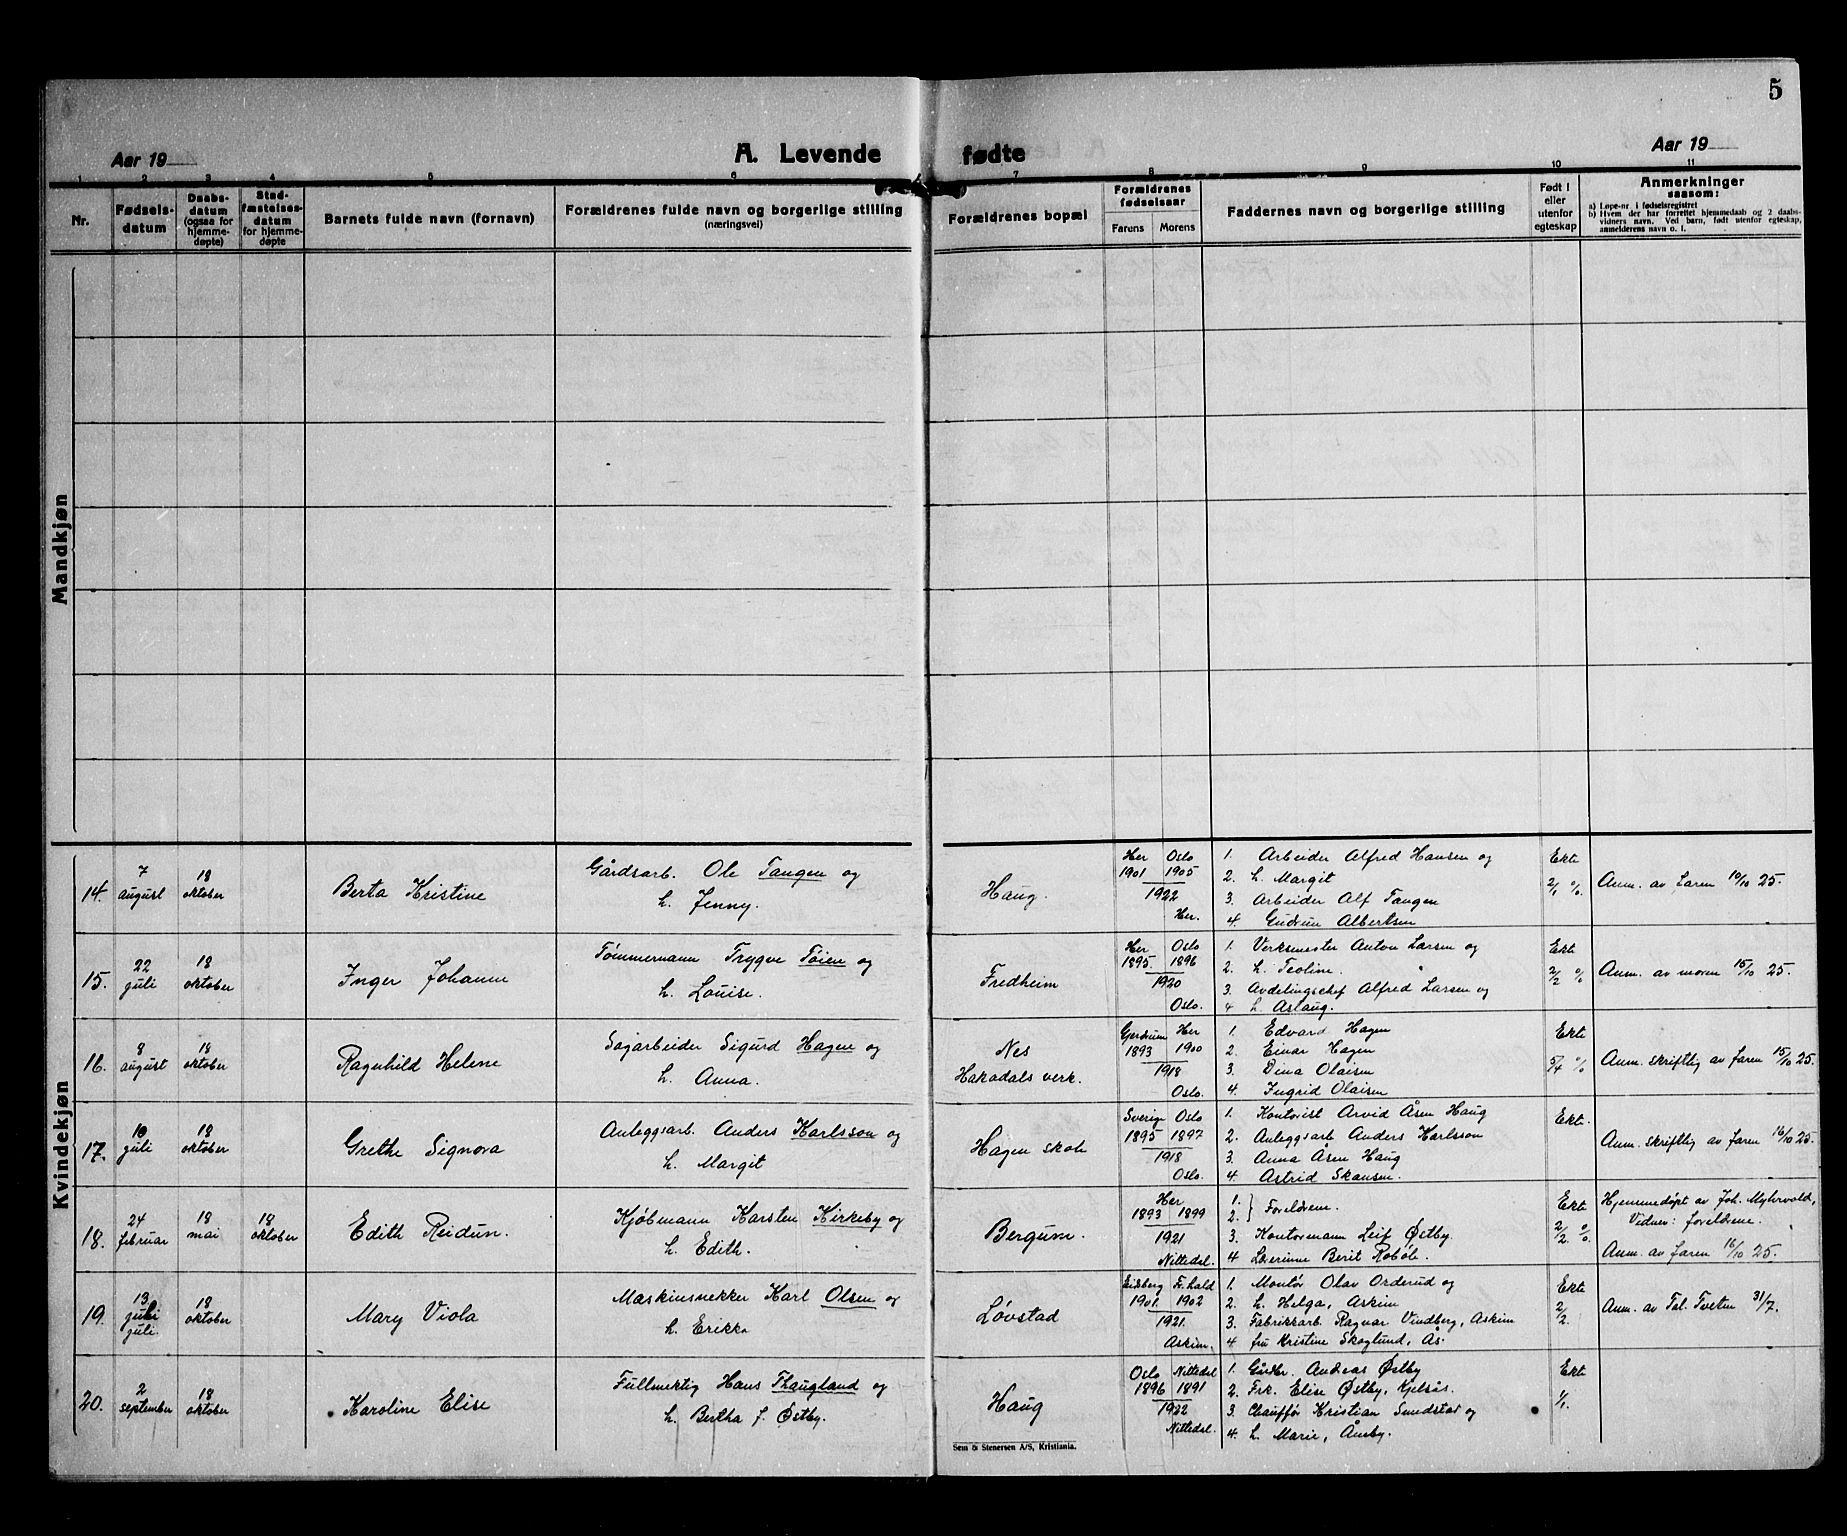 5
Aar 19
A. Levende fødte
Aar 19
1 2 3 4 5 6 7 8 9 10 11
Nr.
Fødsels-
datum
Daabs-
datum
(ogsaa for
hjemme-
døpte)
Stad-
fæstelses-
datum
for hjemme-
døpte
Barnets fulde navn (fornavn)
Forældrenes fulde navn og borgerlige stilling
(næringsvei)
Forældrenes bopæl
Forældrenes
fødselsaar
Farens Morens
Faddernes navn og borgerlige stilling
Født i
eller
utenfor
egteskap
Anmerkninger
saasom:
a) Løpe-nr. i fødselsregistret
b) Hvem der har forrettet hjemmedaab og 2 daabs-
vidners navn. Ved barn, født utenfor egteskap,
anmelderens navn o. l.
Mandkjøn
Kvindekjøn
14.
7
august
18
oktober
Berta Kristine
Gårdsarb. Ole Tangen og
h. Jenny.
Haug.
Her Oslo
1901 1905
1922
Her.
1. Arbeider Alfred Hansen og
2. h. Margit
3. Arbeider Alf Tangen
4 Gudrun Albertsen
Ekte
2/1 %.
Anm. av faren 10/10 25.
15.
22
juli
18
oktober
Inger Johanne
Tømmermann Trygve Tøien og
h. Louise.
Fredheim
Her Oslo
1895 1896
1920
Oslo.
1. Verksmester Anton Larsen og
2. h. Teoline.
3. Avdelingschef Alfred Larsen og
4 h. Aslaug.
Ekte
2/2 %
Anm. av moren 15/10 25.
16.
8
august
18
oktober
Ragnhild Helene
Sagarbeider Sigurd Hagen og
h. Anna.
Nes
Hakadals verk.
Gjerdrum Her
1893 1900
1918
Oslo.
1. Edvard Hagen
2. Einar Hagen
3. Dina Olaisen
4. Ingrid Olaisen
Ekte
5/4 %
Anm. skriftlig av faren 15/10 25.
17.
10
juli
18
oktober
Grethe Signora
Anleggsarb. Anders Karlsson og
h. Margit
Hagen skole
Sverige Oslo
1895 1897
1918
Oslo.
1. Kontorist Arvid Åsen Haug
2. Anleggsarb Anders Karlsson
3. Anna Åsen Haug
4. Astrid Skansen.
Ekte.
Anm. skriftlig av faren 16/10 25.
18.
24
februar
18
mai
18
oktober
Edith Reidun.
Kjøbmann Karsten Kirkeby og
h. Edith.
Bergum.
Her
1893 1899
1921
Nittedal.
1.
2. } Foreldrene.
3. Kontormann Leif Østby.
4 Lærerinne Berit Robøle.
Ekte
2/2. %.
Hjemmedøpt av Joh. Myhrvold,
Vidner: foreldrene.
Anm. av faren 16/10 25.
19.
13
juli
juli.
18
oktober
Mary Viola
Maskinsnekker Karl Olsen og
h. Erikka
Løvstad
Eidsberg Fr.hald
1901. 1902
1921.
Askim.
1. Montør Olav Orderud og
2. h. Helga, Askim
3. Fabrikkarb. Ragnar Vindberg, Askim
4 fru Kristine Skoglund, Ås.
Ekte
2/2.
Anm. av Tal. Tveten 31/7.
20.
2
september
18
oktober
Karoline Elise
Fullmektig Hans Thaugland og
h. Bertha f. Østby.
Haug
Oslo Nittedal
1896 1891
1922
Nittedal.
1. Gårdbr. Andreas Østby
2. Frk. Elise Østby, Kjelsås.
3. Chauffør Kristian Sundstad og
4. h. Marie, Åneby.
Ekte
1/1.
Sem & Stenersen A/S, Kristiania.